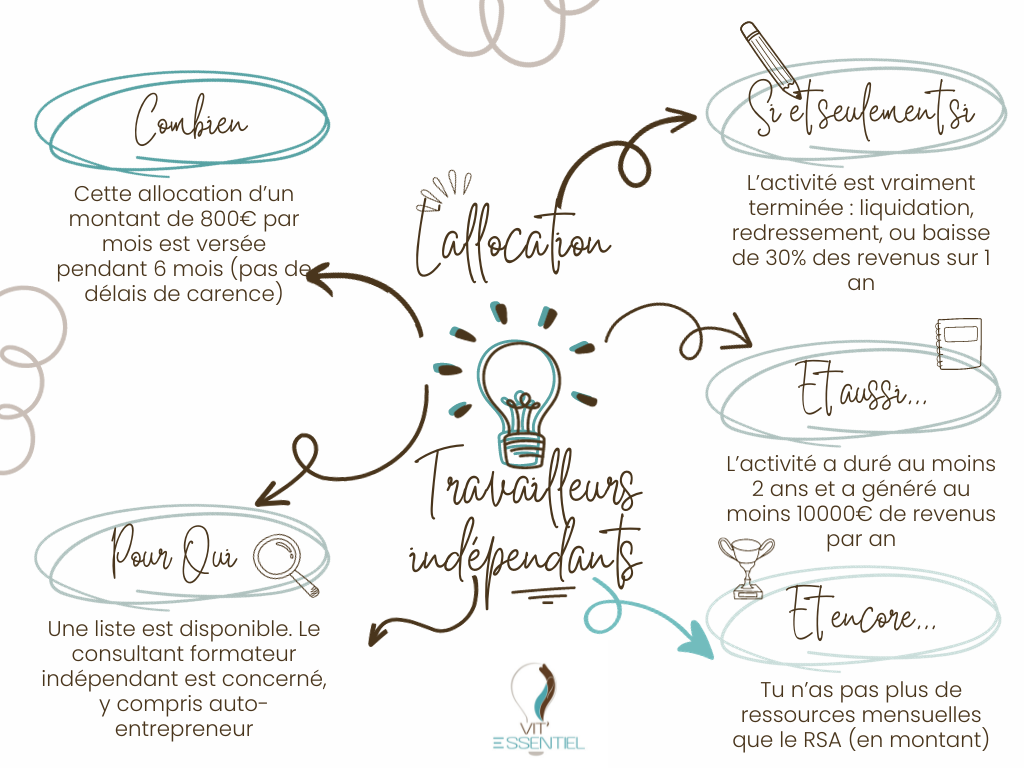 Combien
Cette allocation d'un
montant de 800€ par
mois est versée
pendant 6 mois (pas de
délais de carence)
L'allocation
Travailleurs
indépendants
Pour Qui
Une liste est disponible. Le
consultant formateur
indépendant est concerné,
y compris auto-
entrepreneur
Si et seulement si
L'activité est vraiment
terminée : liquidation,
redressement, ou baisse
de 30% des revenus sur 1
an
Et aussi...
L'activité a duré au moins
2 ans et a généré au
moins 10000€ de revenus
par an
Et encore...
Tu n'as pas plus de
ressources mensuelles
que le RSA (en montant)
VIT'
ESSENTIEL